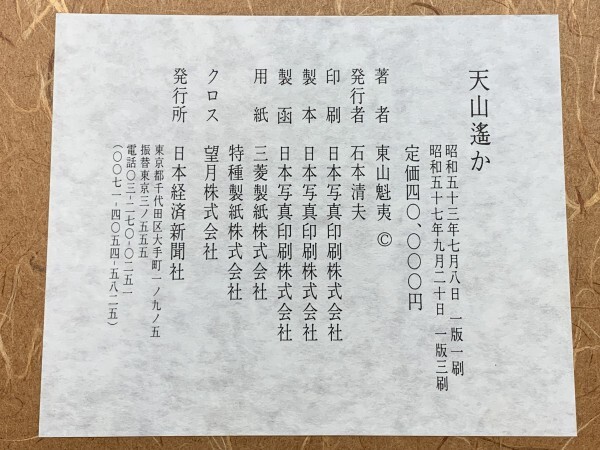 天山遙か
昭和五十三年七月八日　一版一刷
昭和五十七年九月二十日　一版三刷
定価四〇、〇〇〇円
著者　東山魁夷　©
発行者　石本清夫
印刷　日本写真印刷株式会社
製本　日本写真印刷株式会社
製函　日本写真印刷株式会社
用紙　三菱製紙株式会社
特種製紙株式会社
クロス　望月株式会社
発行所　日本経済新聞社
東京都千代田区大手町一ノ九ノ五
振替東京三ノ五五五
電話〇三-二七〇-〇二五一
(〇〇七一-四〇五四-五八二五)